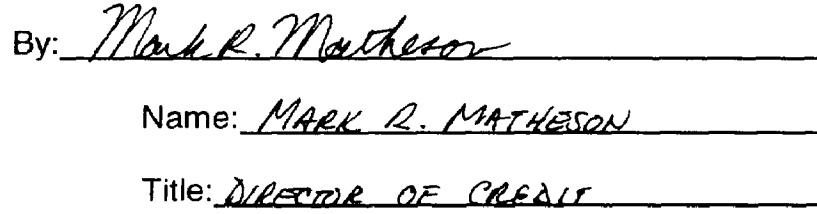 By: Mark R. Matheson
Name: MARK R. MATHESON
Title: DIRECTOR OF CREDIT